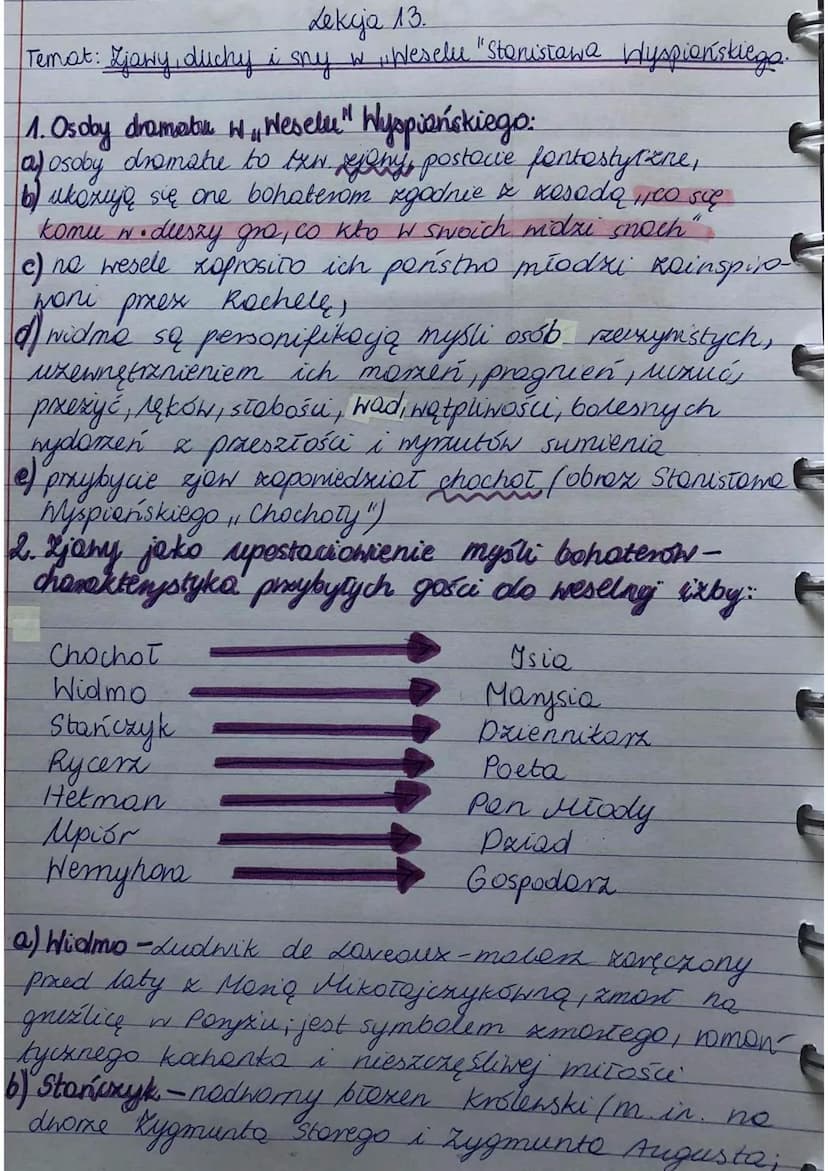 Lekcja 13.
Temat: Zjawy, duchy i sny w „Weselu" Stanisława Wyspiańskiego.
1. Osoby dramatu w „Weselu" Wyspiańskiego:
a) osoby dramatu to tzw. zjawy, postacie fantastyczne,
b) ukazują się one bohaterom zgodnie z zasadą „co się
komu w duszy gra, co kto w swoich widzi snach"
c) na wesele zaprosiło ich państwo młodzi zainspiro-
wani przez Rachelę,
d) widma są personifikacją myśli osób rzeczywistych,
uzewnętrznieniem ich marzeń, pragnień, uczuć,
przeżyć, lęków, słabości, wad, wątpliwości, bolesnych
wydarzeń z przeszłości i wyrzutów sumienia
e) przybycie zjaw zapowiedział chochoł (obraz Stanisława
Wyspiańskiego „Chochoły")
2. Zjawy jako upostaciowienie myśli bohaterów -
charakterystyka przybyłych gości do weselnej izby:
Chochoł → Isia
Widmo → Marysia
Stańczyk → Dziennikarz
Rycerz → Poeta
Hetman → Pan Młody
Upiór → Dziad
Wernyhora → Gospodarz
a) Widmo - Ludwik de Laveaux - malarz zaręczony
przed laty z Marią Mikołajczykówną, zmarł na
gruźlicę w Paryżu; jest symbolem zmarłego, roman-
tycznego kochanka i nieszczęśliwej miłości
b) Stańczyk - nadworny błazen królewski (m.in. na
dworze Zygmunta Starego i Zygmunta Augusta;